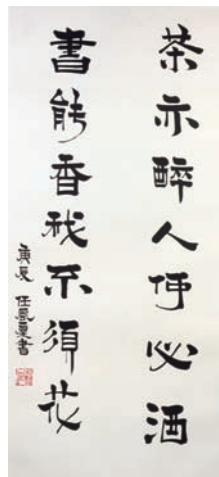 茶亦醉人何必酒
書能香我不須花
庚辰 任書